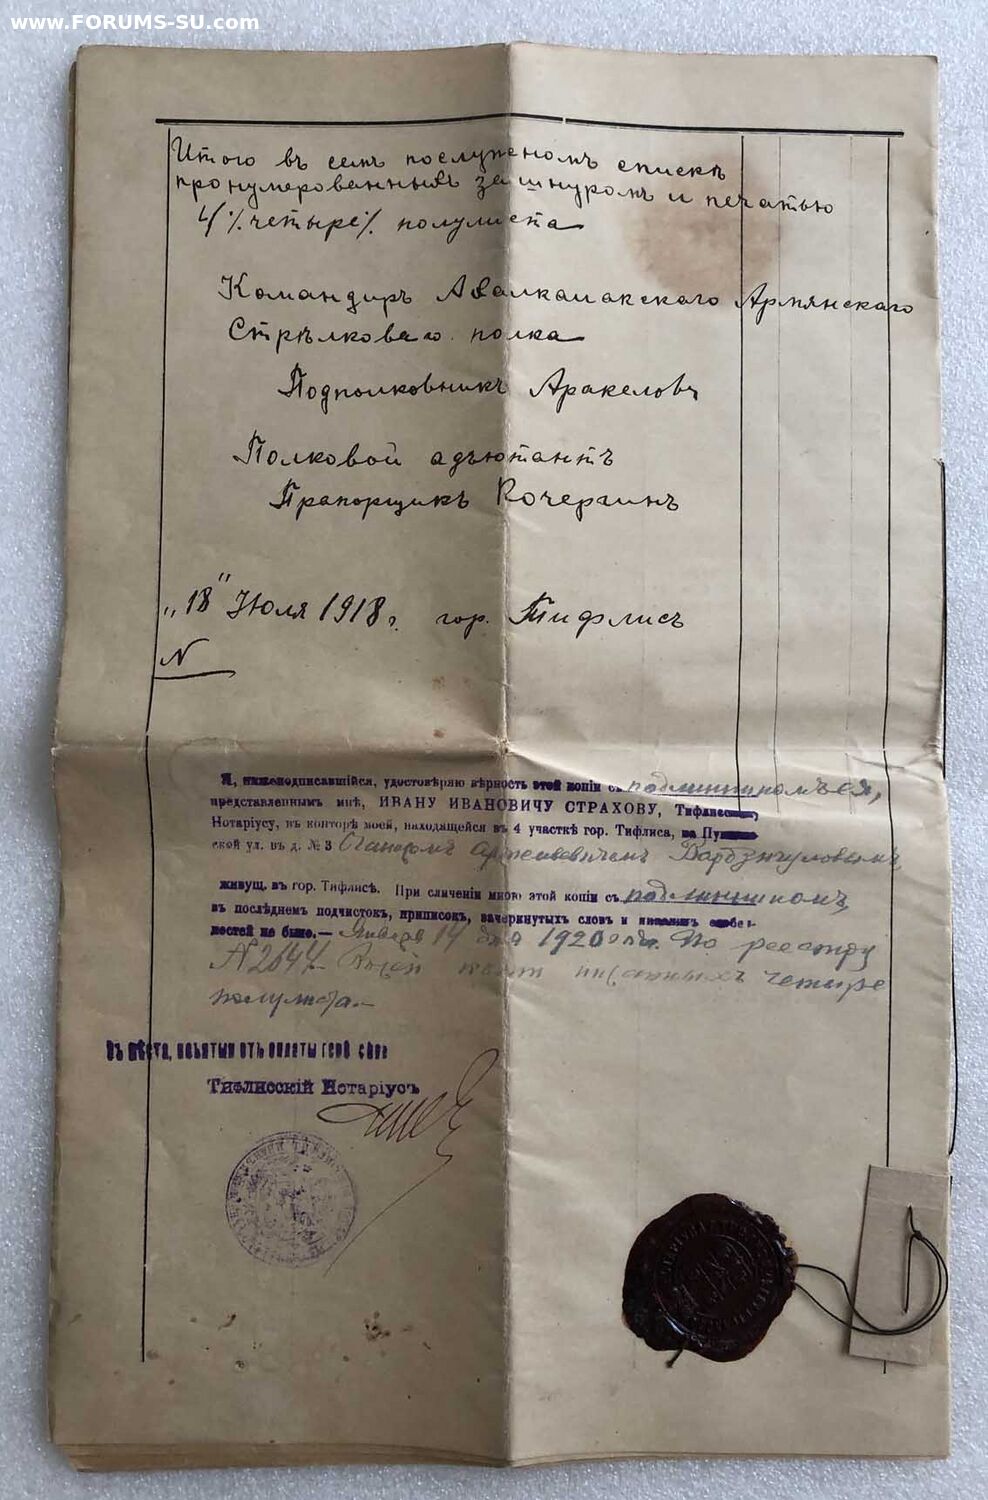 www.FORUMS-SU.com
Итого въ семъ послужномъ спискѣ
пронумерованныхъ за шнуромъ и печатью
4/% четыре % полулиста
Командиръ Ахалкалакскаго Армянскаго
Стрѣлковаго полка
Подполковникъ Аракеловъ
Полковой адъютантъ
Прапорщикъ Кочергинъ
„18" Июля 1918 г. гор. Тифлисъ
N
Я, нижеподписавшійся, удостовѣряю вѣрность этой копіи съ подлинникомъ ея,
представленнымъ мнѣ, ИВАНУ ИВАНОВИЧУ СТРАХОВУ, Тифлисскому
Нотаріусу, въ конторѣ моей, находящейся въ 4 участкѣ гор. Тифлиса, на
ской ул. въ д. № 3
живущ. въ гор. Тифлисѣ. При сличеніи мною этой копіи съ подлинникомъ
въ послѣднемъ подчистокъ, приписокъ, зачеркнутыхъ словъ и никакихъ особен-
ностей не было.— Января 14 дня 1920 года. По реестру
N 2644. четыре
полулиста.—
Тифлисскій Нотаріусъ